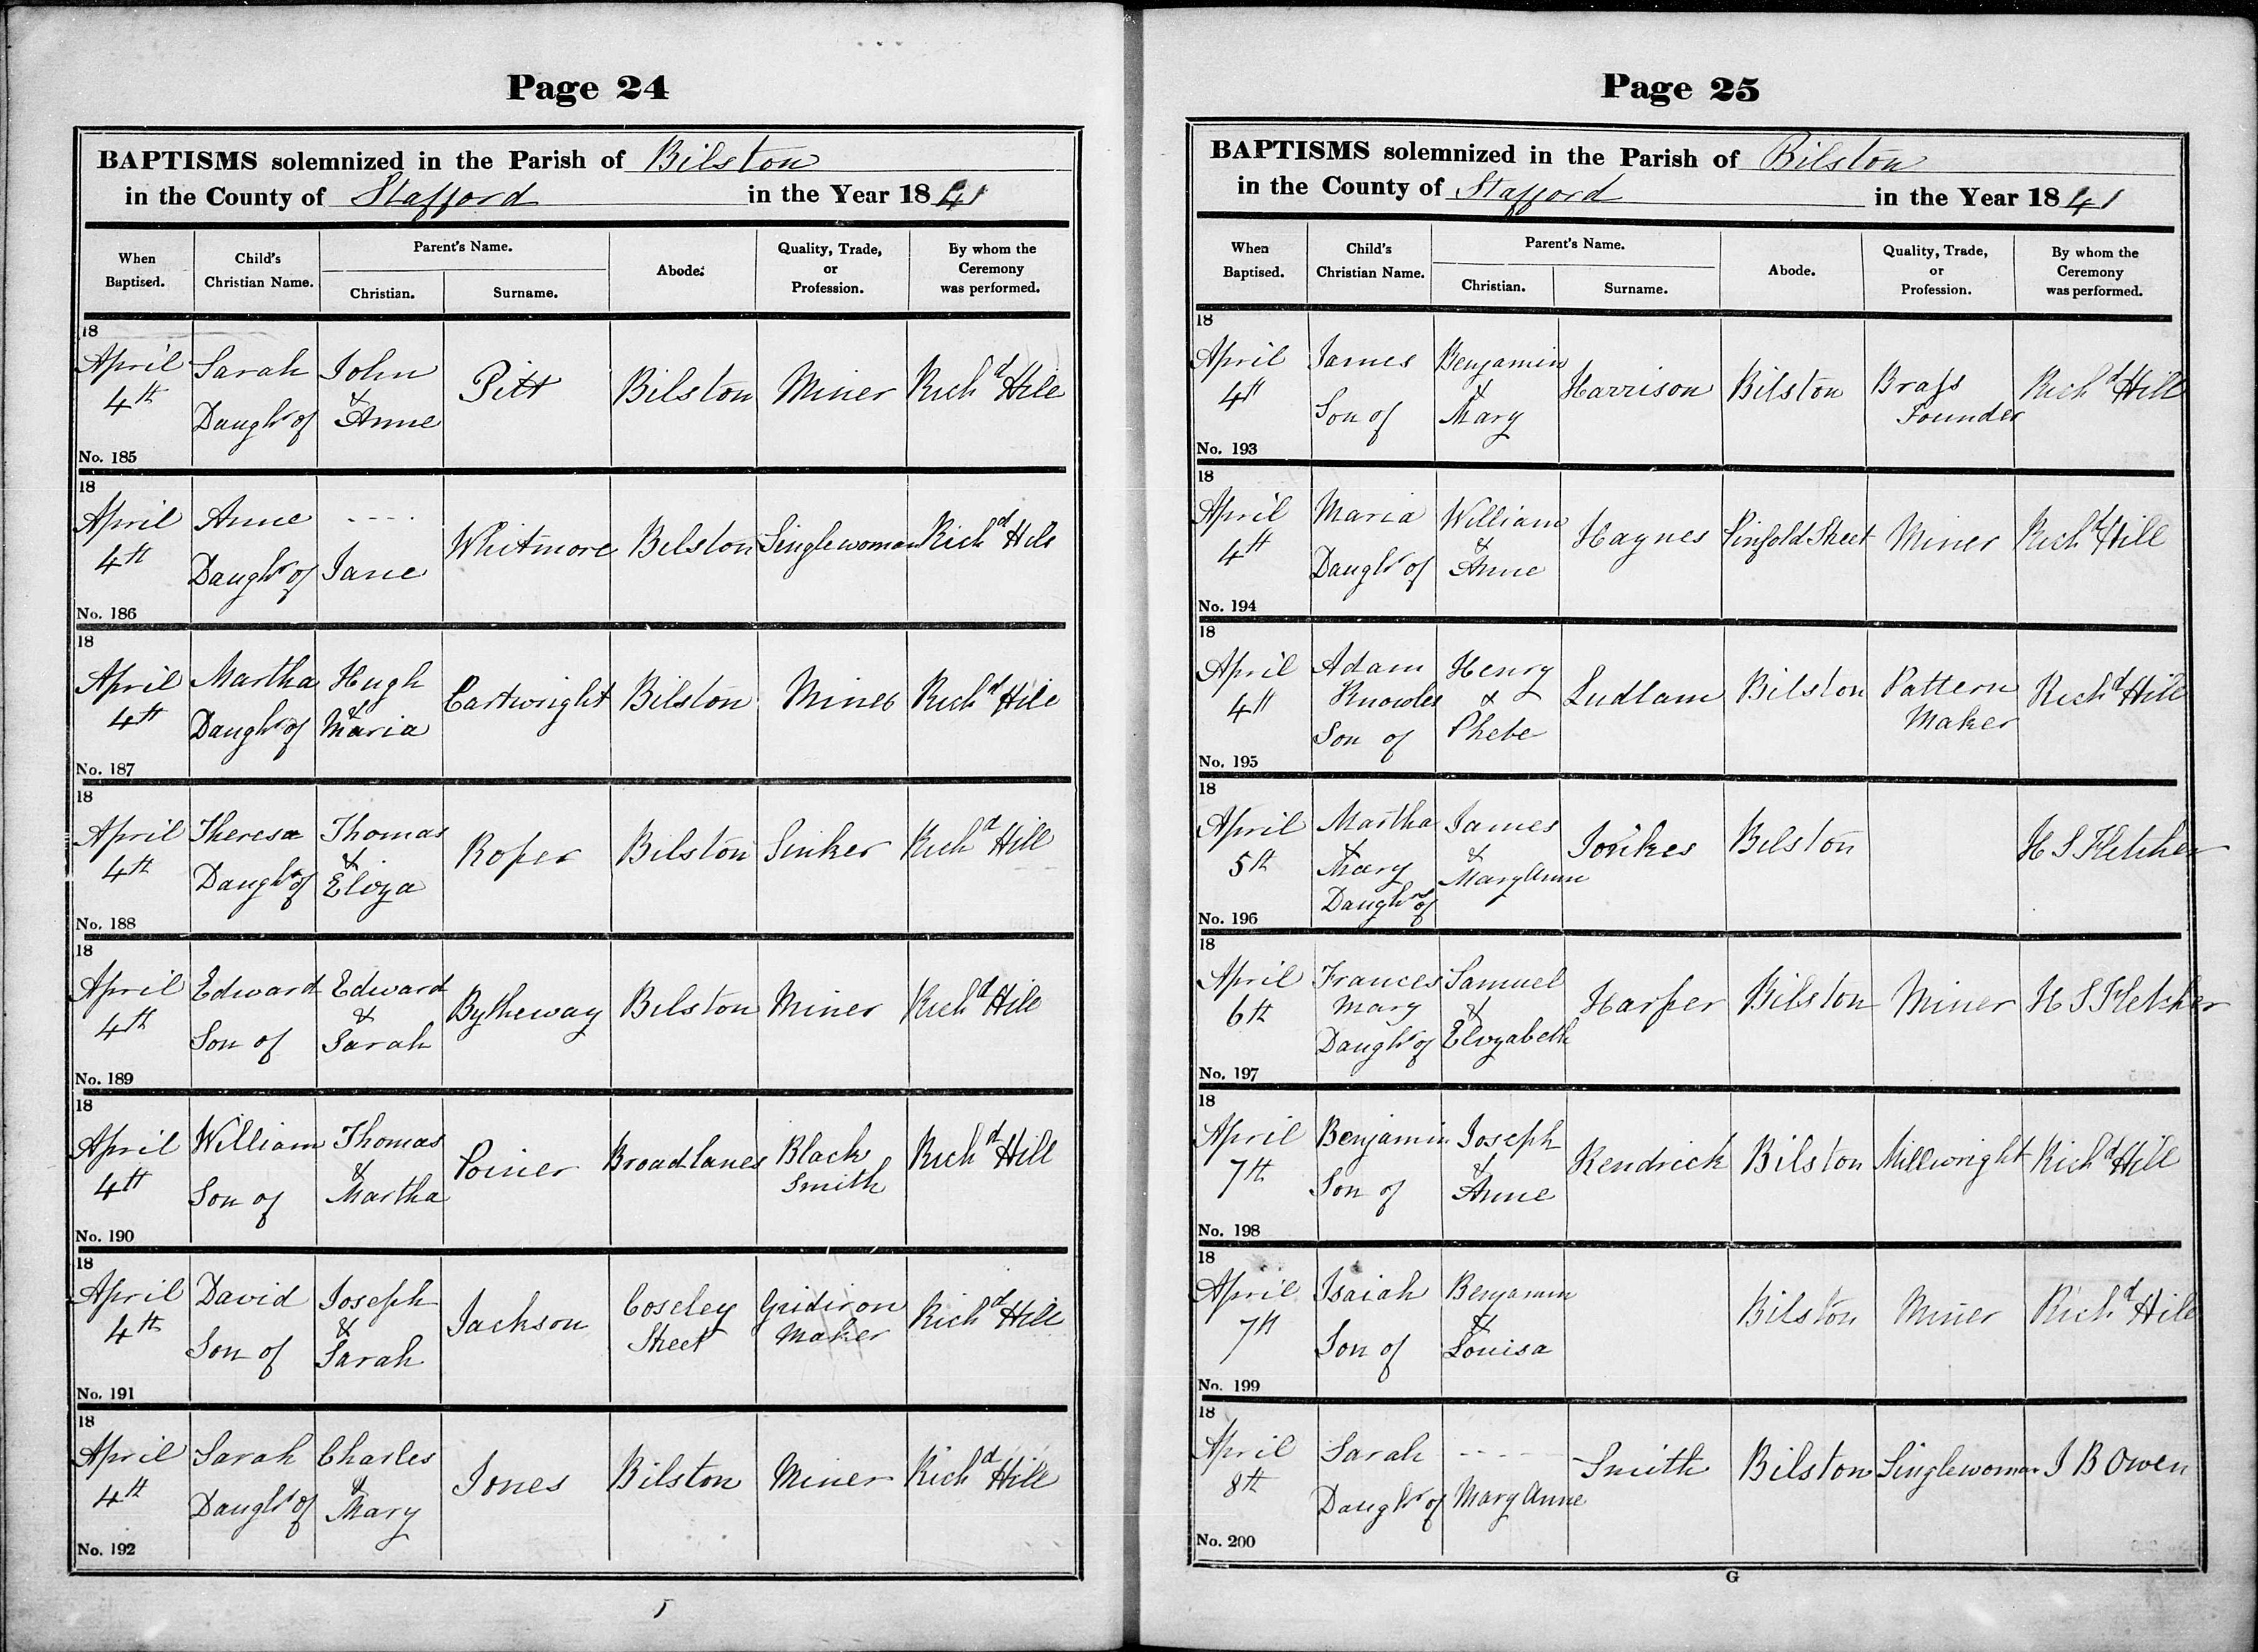 Page 24
BAPTISMS solemnized in the Parish of Bilston
in the County of Stafford in the Year 1841
When Baptised. Child's Christian Name. Parent's Name. Christian. Surname. Abode. Quality, Trade, or Profession. By whom the Ceremony was performed.
18
April Sarah John
4th Daughr of & Anne Pitt Bilston Miner Richd Hill
No. 185
18
April Anne - - - -
4th Daughr of Jane Whitmore Bilston Singlewoman Richd Hill
No. 186
18
April Martha Hugh
4th Daughr of & Maria Cartwright Bilston Miner Richd Hill
No. 187
18
April Theresa Thomas
4th Daughr of & Eliza Roper Bilston Sinker Richd Hill
No. 188
18
April Edward Edward
4th Son of & Sarah Bytheway Bilston Miner Richd Hill
No. 189
18
April William Thomas
4th Son of & Martha Poiner Broadlanes Black Smith Richd Hill
No. 190
18
April David Joseph
4th Son of & Sarah Jackson Coseley Street Gridiron Maker Richd Hill
No. 191
18
April Sarah Charles
4th Daughr of & Mary Jones Bilston Miner Richd Hill
No. 192
Page 25
BAPTISMS solemnized in the Parish of Bilston
in the County of Stafford in the Year 1841
When Baptised. Child's Christian Name. Parent's Name. Christian. Surname. Abode. Quality, Trade, or Profession. By whom the Ceremony was performed.
18
April James Benjamin
4th Son of & Mary Harrison Bilston Brass Founder Richd Hill
No. 193
18
April Maria William
4th Daughr of & Anne Haynes Pinfold Street Miner Richd Hill
No. 194
18
April Adam Knowles Henry
4th Son of & Phebe Ludlam Bilston Pattern Maker Richd Hill
No. 195
18
April Martha & Mary James
5th Daughrs of & Mary Ann Bilston H S Fletcher
No. 196
18
April Frances Mary Samuel
6th Daughr of & Elizabeth Harper Bilston Miner H S Fletcher
No. 197
18
April Benjamin Joseph
7th Son of & Anne Kendrick Bilston Millwright Richd Hill
No. 198
18
April Isaiah Benjamin
7th Son of & Louisa Bilston Miner Richd Hill
No. 199
18
April Sarah - - - -
8th Daughr of Mary Anne Smith Bilston Singlewoman J B Owen
No. 200
G